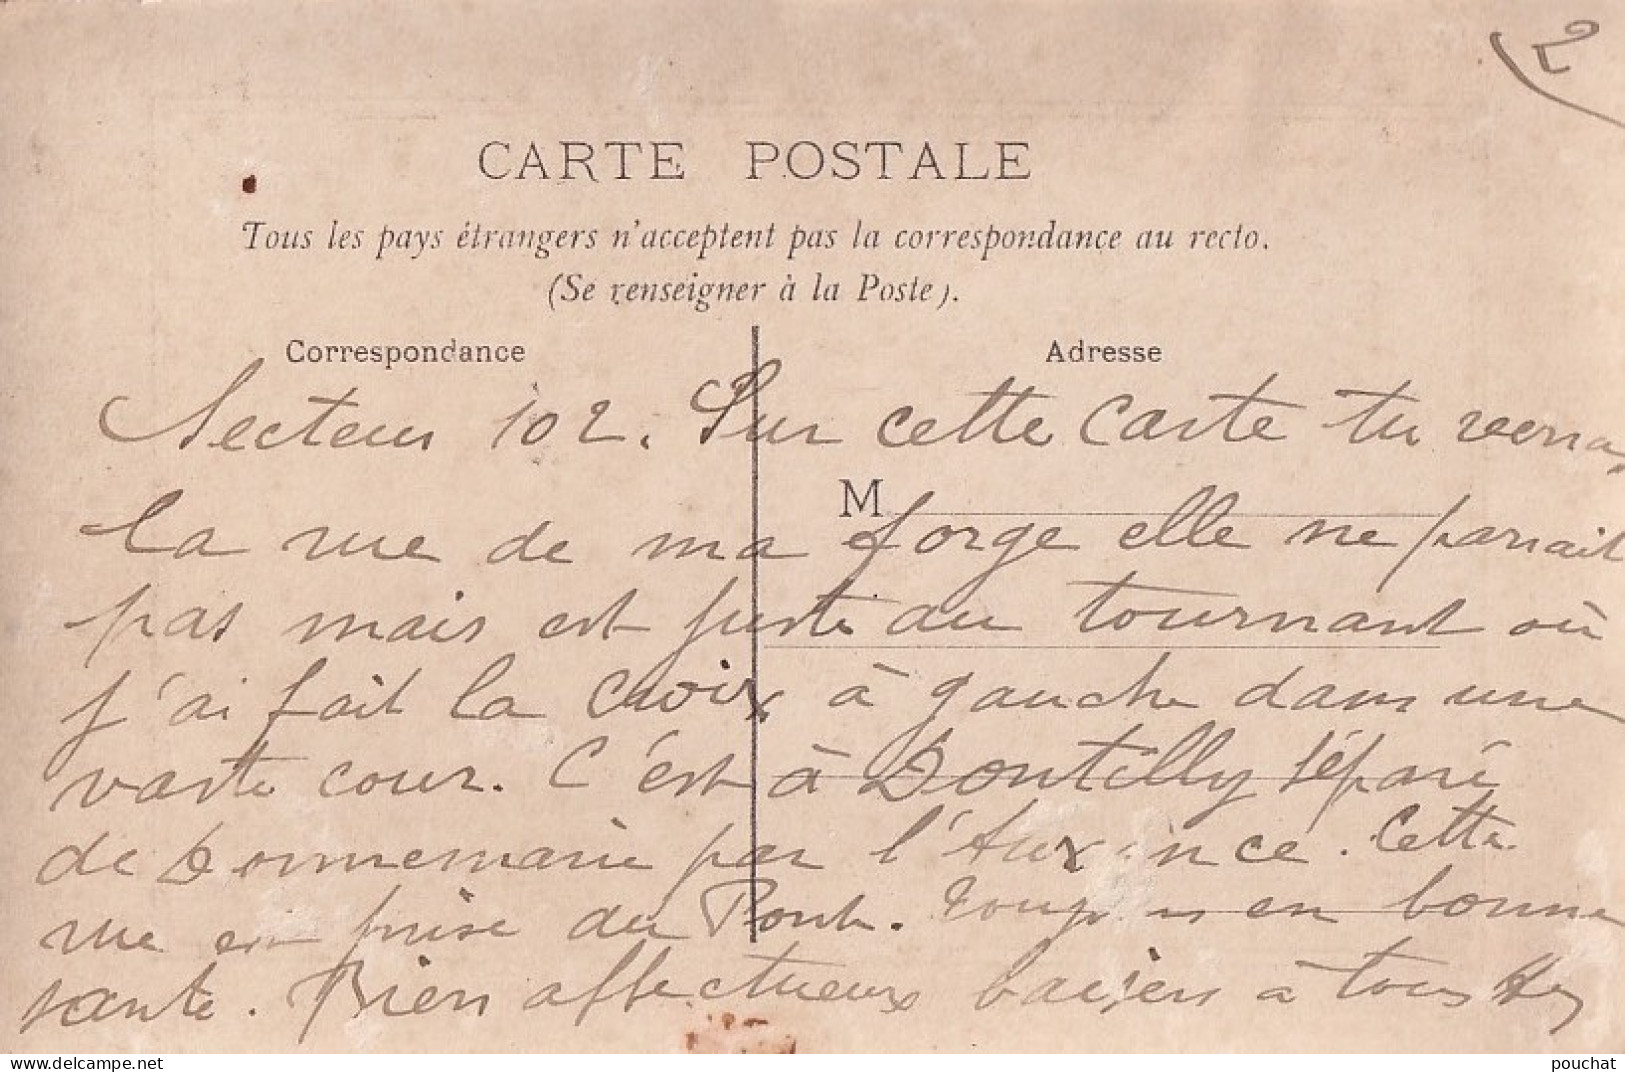 2
CARTE POSTALE
Tous les pays étrangers n'acceptent pas la correspondance au recto.
(Se renseigner à la Poste).
Correspondance
Adresse
M
Secteur 102. Sur cette carte tu verras
la rue de ma forge elle ne parrait
pas mais est juste au tournant où
j'ai fait la croix à gauche dans une
vaste cour. C'est à Dontilly séparé
de Donnemarie par l'Auxence. Cette
rue est prise du Pont. Toujours en bonne
santé. Bien affectueux baisers à tous
www.delcampe.net
pouchat